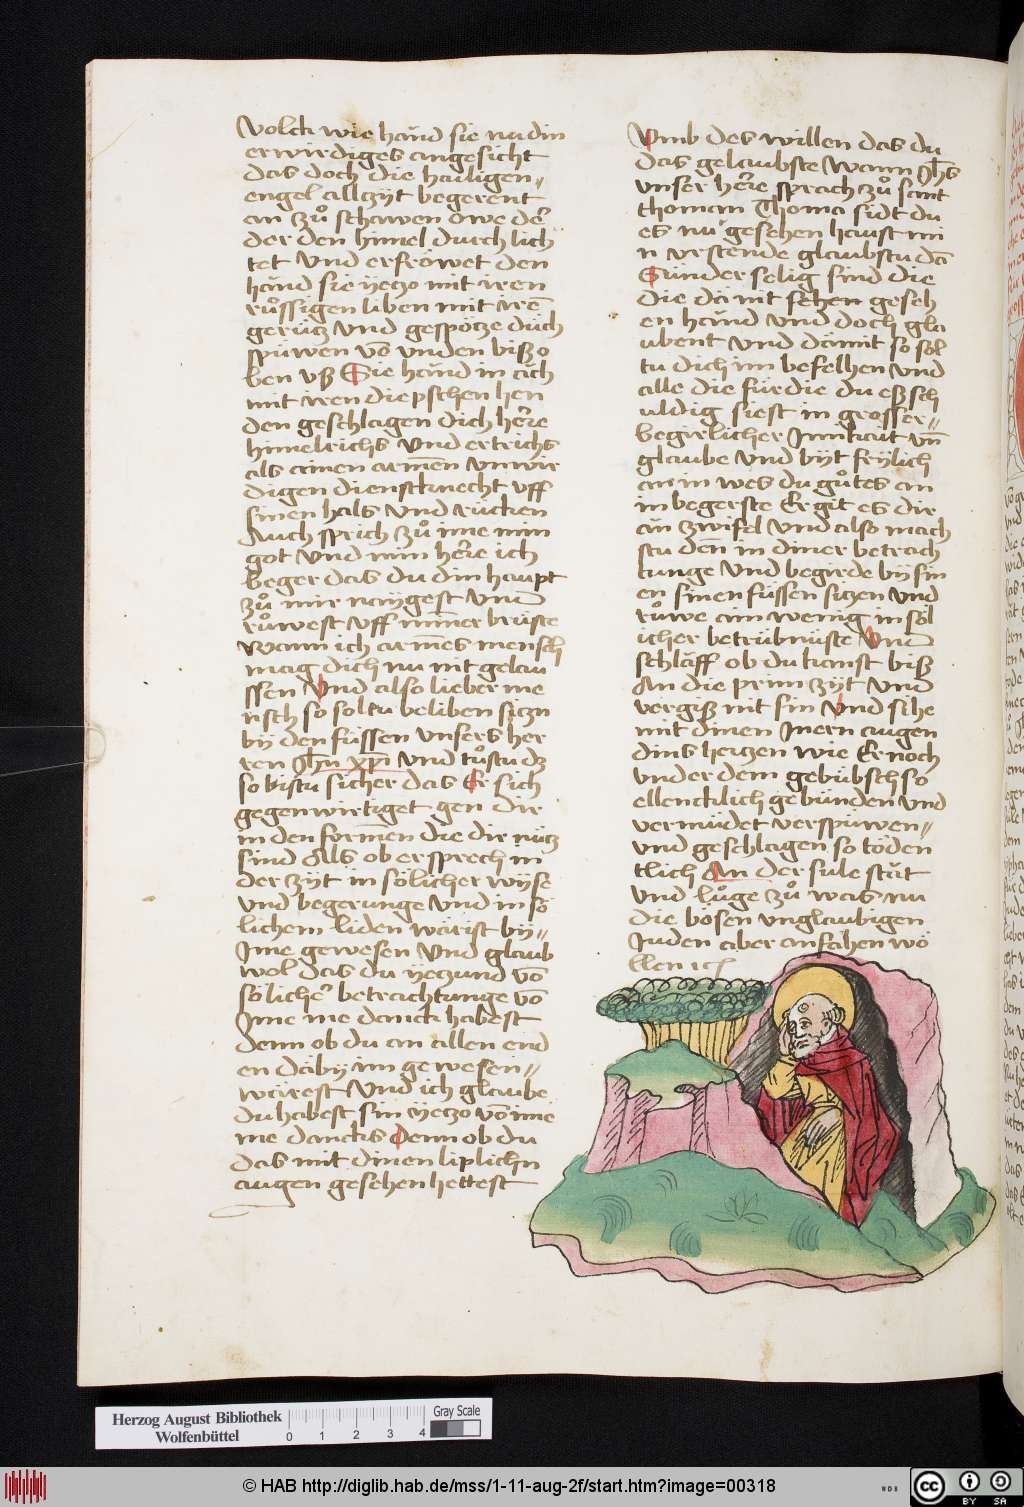 Volck wie händ sie nu din
erwirdiges angesicht
das doch die hailigen„
engel allzyt begerent
an zů schawen owe der̄
der den himel durch lich
tet Vnd erfröwet den
händ sie yeczo mit iren
růssigen liben mit irē
gerücz vnd gespötze düch
spüwen vō vnden bisz o
ben vsz Sie händ in äch
mit iren die pschen hen
den geschlagen dich here
himelrichs vnd ertrichs
als ainen armen vnwir
digen dienstknecht vff
sinen hals vnd rücken
Auch sprich zů ime min
got vnd min here ich
beger das du din haupt
zů mir naygest vnd
růwest vff miner brüste
Wann ich armes mensch
mag dich nu nit gelau
ssen Vnd also lieber me
nsch so soltu beliben siczn
by den füssen vnsers her
ren Jhu xpi vnd tůstu dz
so bistu sicher das Er sich
gegenwirtiget gen dir
in den formen die dir nücz
sind Als ob er sprech in
der zyt in sölicher wyse
vnd begerunge vnd in sö
lichem liden wärist by„
Jme gewesen Vnd glaub
wol das du yeczund vō
sölicher betrachtunge vō
Jme me danck habest
denn ob du an allen end
en däby im gewesen„
wärest Vnd ich glaube
du habest sin yeczo vō ime
me dancks Denn ob du
das mit dinen liplichn
augen gesehen hettest
Vmb des willen das du
das gelaubste Wann Jhs
vnser here sprach zů sant
thoman Thoma sidt du
es nu gesehen haust mi
n vrstende glaubstu dā
Sunder selig sind die
die dä nit sehen geseh
en händ vnd doch gla
ubent vnd dämit so sol
tu dich im befelhen vnd
alle die für die du eß sch
uldig siest in grosser„
begirlicher Jnnikait vn̄
glaube vnd byt frylich
an in wes du gůtes an
in begerste Er git es dir
än zwifel vnd also mach
stu den̄ in diner betrach
tunge vnd begirde by sin
en sinen füssen siczen vnd
růwe ain wenig in söl
icher betrübnüste Vnd
schläff ob du kanst bisz
An die prim zyt vnd
vergisz nit sin Vnd sihe
mit dinen Jnern augen
dins hertzen wie Er noch
vnder dem gebübsch so
ellencklich gebünden vnd
vermüdet verspüwen„
vnd geschlagen so töden
tlich An der sule stät
vnd lůge zů was nu
die bösen vnglaubigen
Juden aber anfahen wö
llen ich
Herzog August Bibliothek
Wolfenbüttel
0 1 2 3 4
Gray Scale
© HAB http://diglib.hab.de/mss/1-11-aug-2f/start.htm?image=00318
WDB
cc BY SA